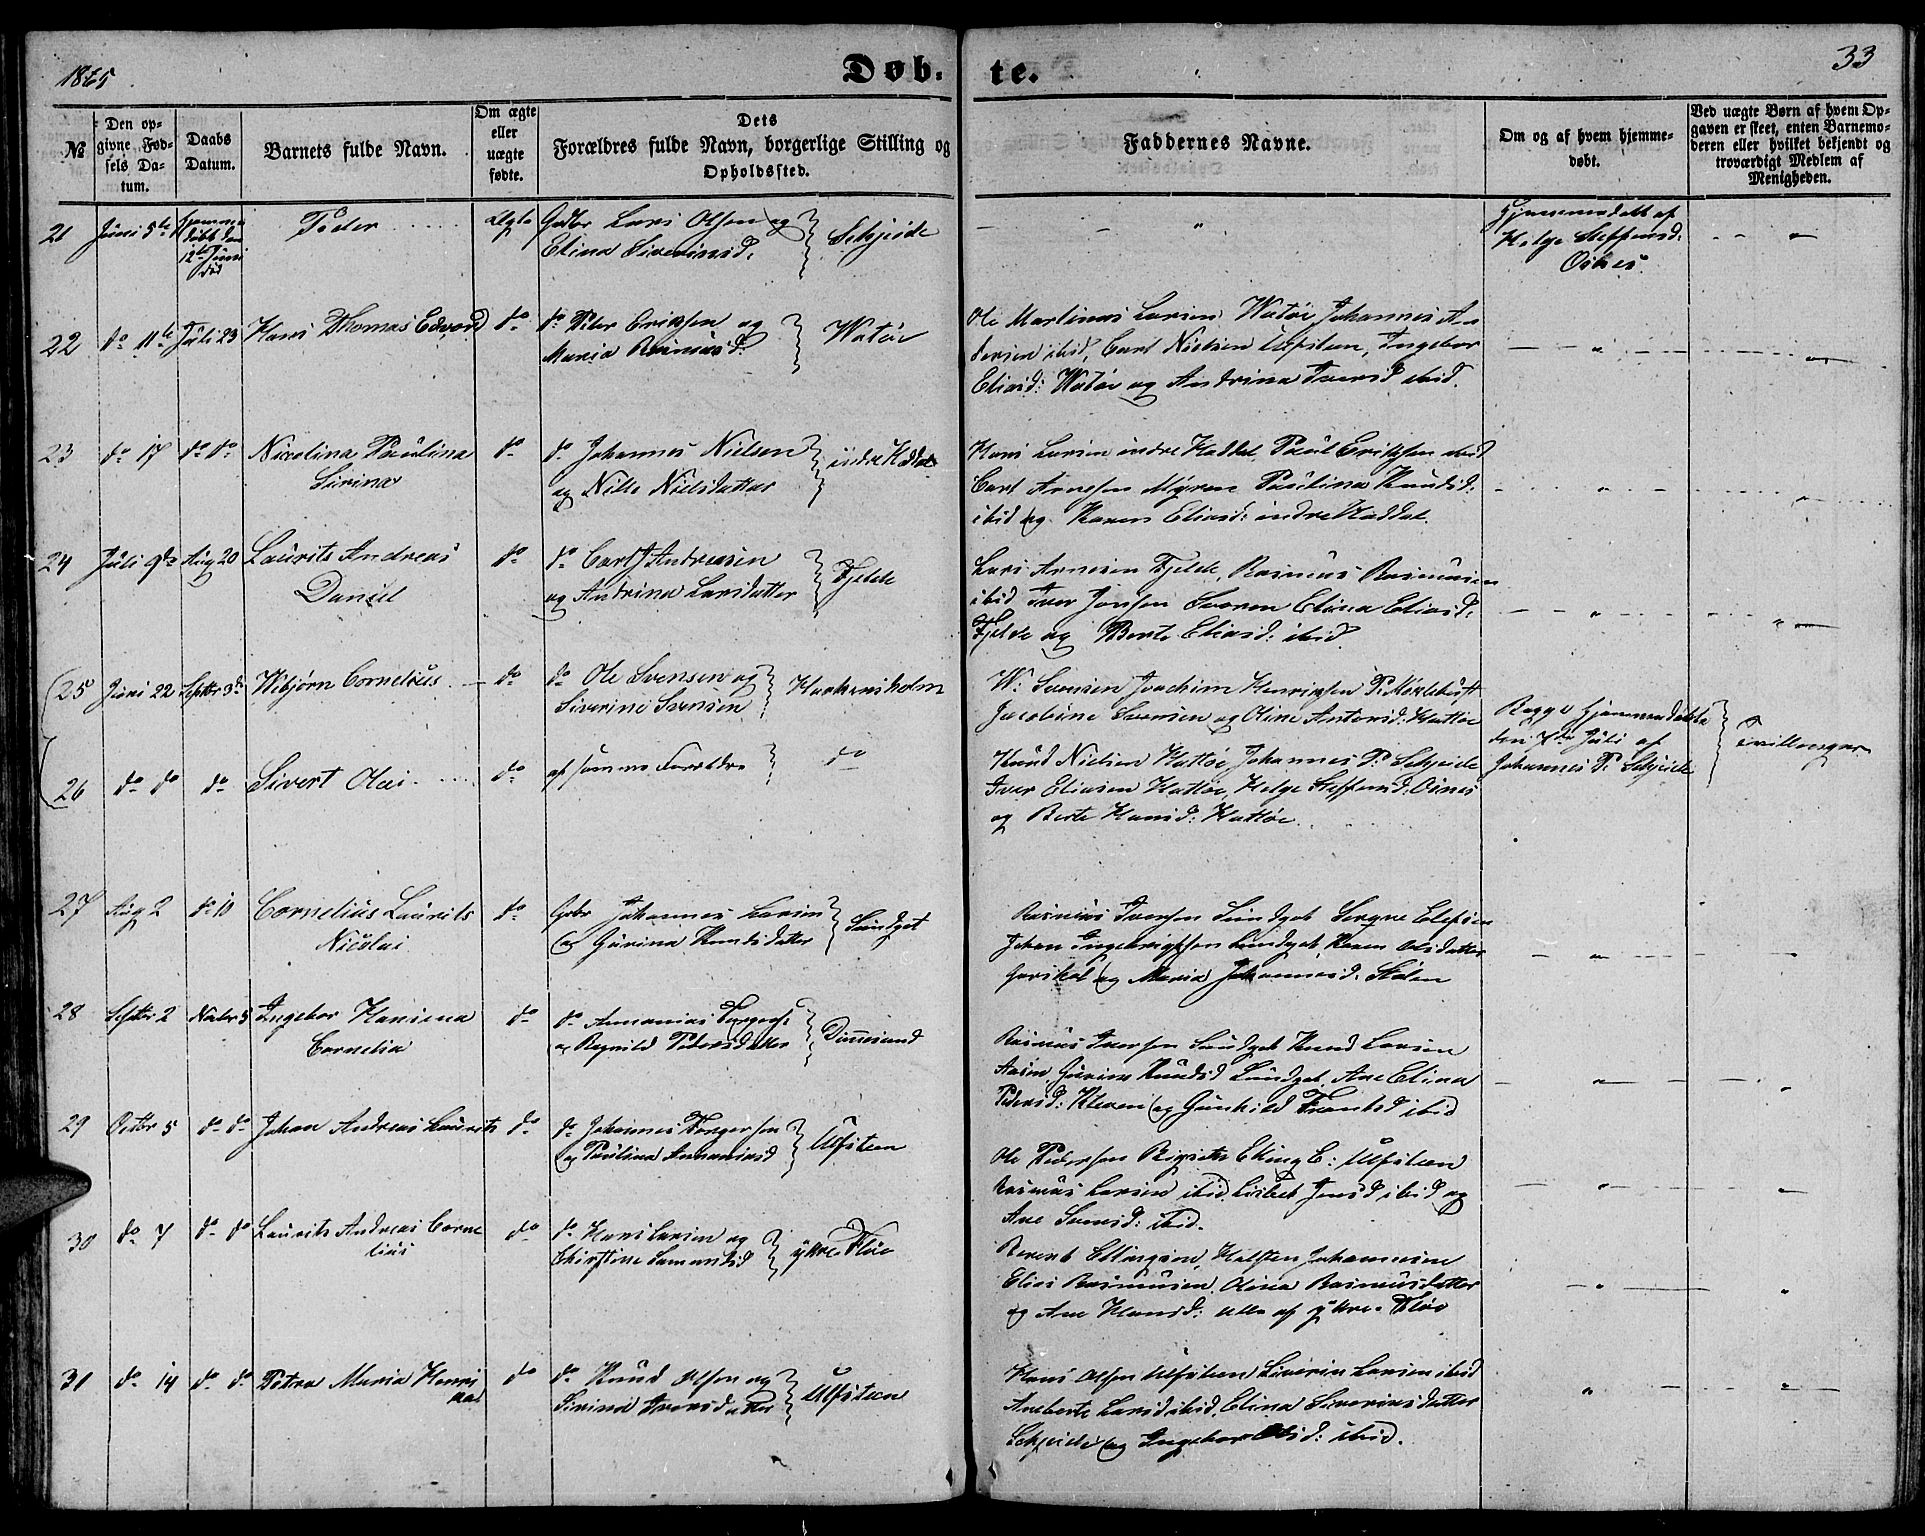 1865
Døb-
te.
33
№
Den op-
givne Fød-
sels Da-
tum.
Daabs
Datum.
Barnets fulde Navn.
Om ægte
eller
uægte
fødte.
Dets
Forældres fulde Navn, borgerlige Stilling og
Opholdssted.
Faddernes Navne.
Om og af hvem hjemme-
døbt.
Ved uægte Børn af hvem Op-
gaven er skeet, enten Barnemo-
deren eller hvilket bekjendt og
troværdigt Medlem af
Menigheden.
21
Juni 5te
hjemme
døbt den
12te Juni
Peder
Ægte
Gdbr Lars Olsen og
Elina Siverinsd:
Schjeide
Hjemmedøbt af
Helge Steffensd:
Osnes
22
do 11te
Juli 23
Hans Thomas Edvard
do
do Peder Eriksen og
Maria Rasmusd:
Watøe
Ole Martinus Larsen Watøe Johannes An
dersen ibid, Carl Nielsen Ulfsteen, Ingebor
Eliasd: Watøe og Andrina Iversd ibid.
23
do 17
do do
Nicolina Paulina
Sirina
do
do Johannes Nielsen
og Nille Nielsdatter
indre Haddal
Hans Larsen indre Haddal, Paul Eriksen ibid
Carl Arnesen Myren Paulina Knudsd:
ibid og Karen Eliasd: indre Haddal.
24
Juli 9de
Aug 20
Laurits Andreas
Daniel
do
do Carl J Andreasen
og Andrina Larsdatter
Fjelde
Lars Arnesen Fjelde, Rasmus Rasmusen
ibid Iver Jonsen Elina Eliasd:
Fjelde og Berte Eliasd: ibid
25
Juni 22
Septbr 3de
Wibjørn Cornelius
do
do Ole Svensen og
Siverine Svensen
Haakonsholm
W: Svensen Joachim Henriksen P: Mørkebust
Jacobine Svensen og Oline Antonsd: Hattøe
Begge Hjemmedøbte
den 7de Juli af
Johannes P. Schjeide
Tvillinger
26
do do
do
Sivert Olai
do
af samme Forældre
do
Knud Nielsen Hattøe Johannes P. Schjeide
Iver Eliasen Hattøe, Helge Steffensd: Osnes
og Berte Hansd: Hattøe.
27
Aug 2
do 10
Cornelius Laurits
Nicolai
do
Gdbr Johannes Larsen
og Gurina Knudsdatter
Sundgot
Rasmus Iversen Sundgot
Johan Ingebrigtsen Sundgot, Karen Olsdatter
og Maria Johannesd: Støten
28
Septbr 2
Novbr 5
Ingebor Hansina
Cornelia
do
do Annanias
og Ragnild Pedersdatter
Dimesund
Rasmus Iversen Sundgot Knud Larsen
Aasen, Gurine Knudsd Sundgot, Ane Elina
Pedersd: Kleven og Gunhild Frantsd ibid
29
Octbr 5
do do
Johan Andreas Laurits
do
do Johannes
og Paulina Annaniasd
Ulfsteen
Ole Pedersen Ulfsteen
Rasmus Larsen ibid Lisbet Jensd ibid og
Ane ibid.
30
do 7
do do
Laurits Andreas Corne
lius
do
do Hans Larsen og
Christine
ytre Fløe
Berent Ellingsen, Halsten Johannesen
Elias Rasmusen, Olina Rasmusdatter
og Ane Hansd: alle af ytre Fløe
31
do 14
do do
Petra Maria Henri
kas
do
do Knud Olsen og
Sirina Iversdatter
Ulfsteen
Hans Olsen Ulfsteen Siverin Larsen ibid
Aneberte Larsd ibid, Elina Siverinsdatter
Schjeide og Ingebor Olsd: ibid.